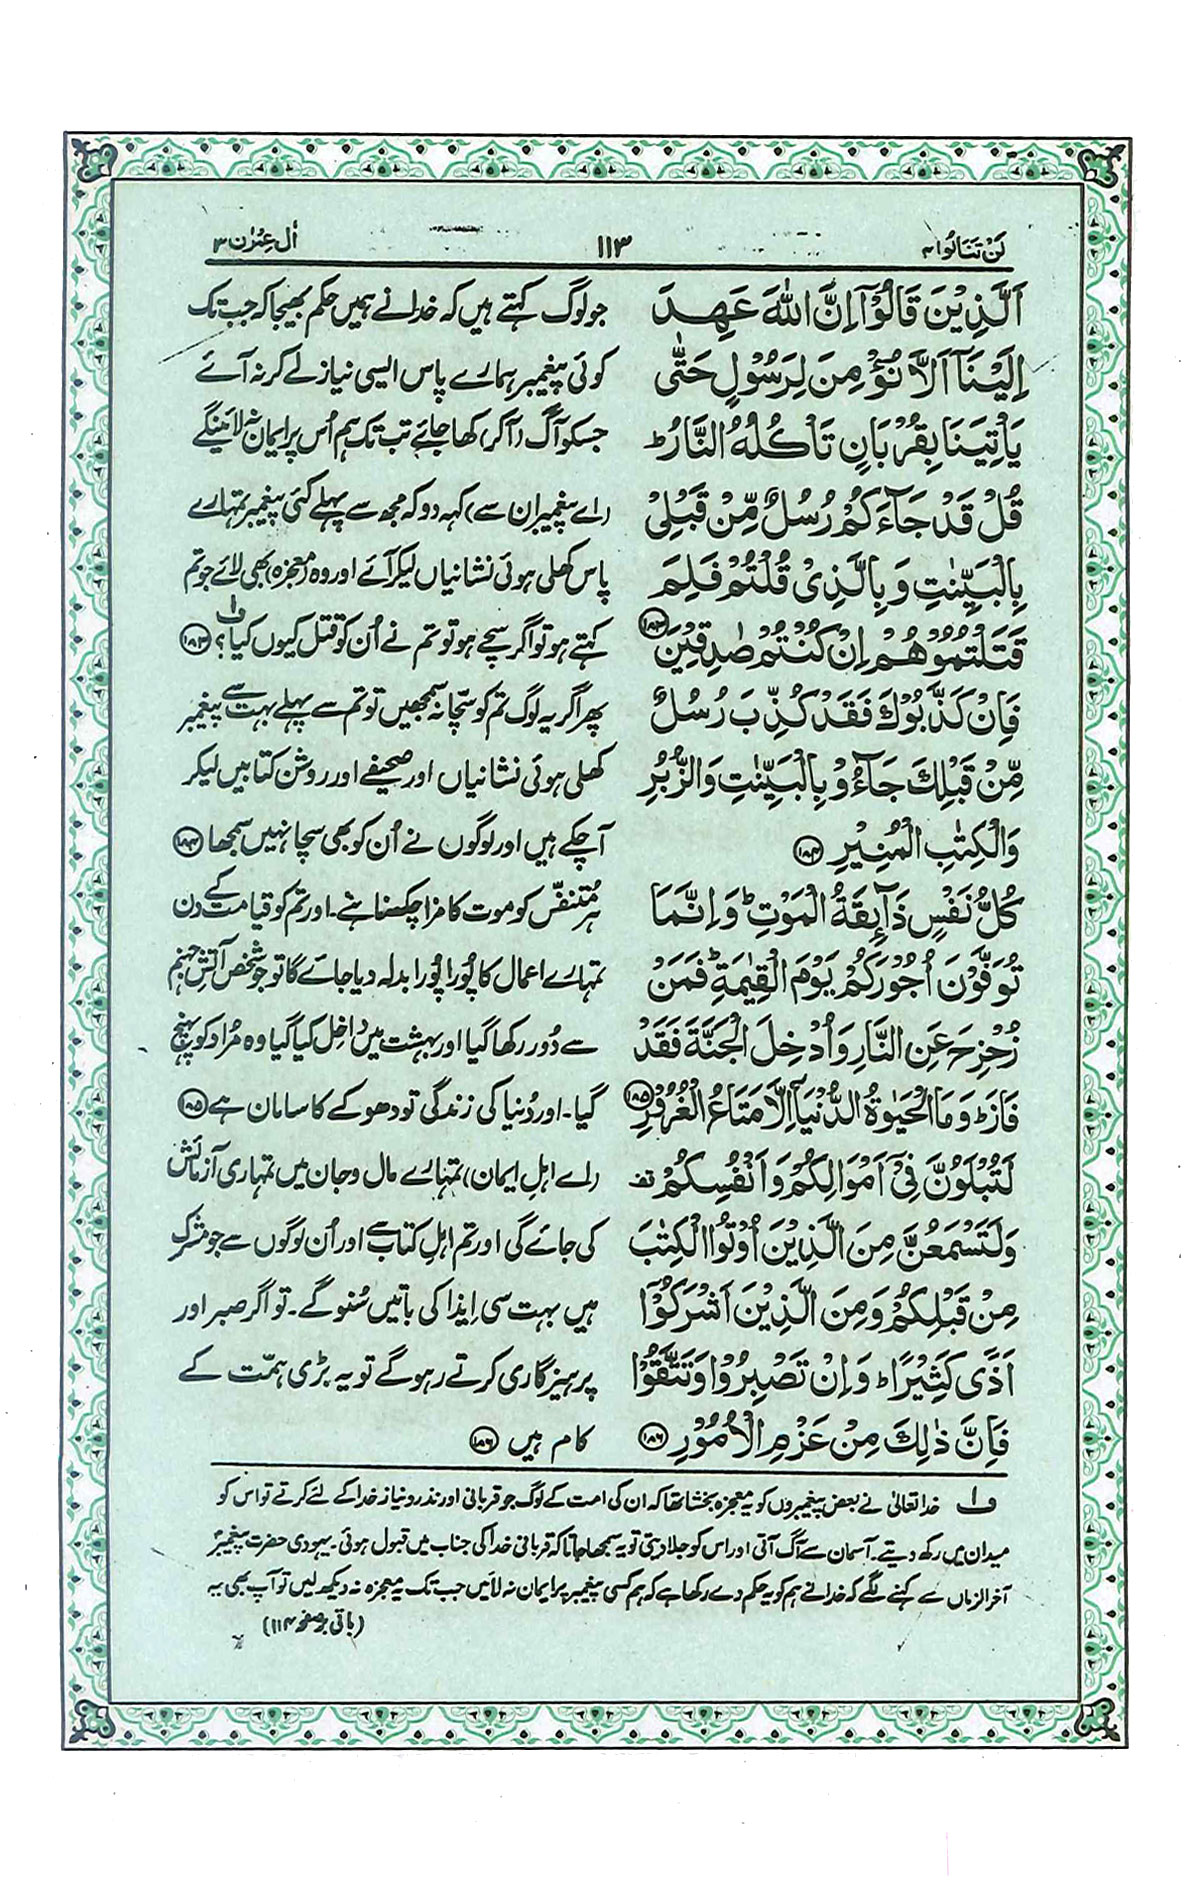 لَنْ تَنَالُوا ۴
۱۱۳
اٰل عِمْرٰن ۳
اَلَّذِيْنَ قَالُوْۤا اِنَّ اللّٰهَ عَهِدَ
اِلَيْنَاۤ اَلَّا نُؤْمِنَ لِرَسُوْلٍ حَتّٰى
يَاْتِيَنَا بِقُرْبَانٍ تَاْكُلُهُ النَّارُ ؕ
قُلْ قَدْ جَآءَكُمْ رُسُلٌ مِّنْ قَبْلِيْ
بِالْبَيِّنٰتِ وَ بِالَّذِيْ قُلْتُمْ فَلِمَ
قَتَلْتُمُوْهُمْ اِنْ كُنْتُمْ صٰدِقِيْنَ ۱۸۳
فَاِنْ كَذَّبُوْكَ فَقَدْ كُذِّبَ رُسُلٌ
مِّنْ قَبْلِكَ جَآءُوْ بِالْبَيِّنٰتِ وَالزُّبُرِ
وَالْكِتٰبِ الْمُنِيْرِ ۱۸۴
كُلُّ نَفْسٍ ذَآىِٕقَةُ الْمَوْتِ ؕ وَ اِنَّمَا
تُوَفَّوْنَ اُجُوْرَكُمْ يَوْمَ الْقِيٰمَةِ ؕ فَمَنْ
زُحْزِحَ عَنِ النَّارِ وَ اُدْخِلَ الْجَنَّةَ فَقَدْ
فَازَ ؕ وَ مَا الْحَيٰوةُ الدُّنْيَاۤ اِلَّا مَتَاعُ الْغُرُوْرِ ۱۸۵
لَتُبْلَوُنَّ فِيْۤ اَمْوَالِكُمْ وَ اَنْفُسِكُمْ قف
وَ لَتَسْمَعُنَّ مِنَ الَّذِيْنَ اُوْتُوا الْكِتٰبَ
مِنْ قَبْلِكُمْ وَ مِنَ الَّذِيْنَ اَشْرَكُوْۤا
اَذًى كَثِيْرًا ؕ وَ اِنْ تَصْبِرُوْا وَ تَتَّقُوْا
فَاِنَّ ذٰلِكَ مِنْ عَزْمِ الْاُمُوْرِ ۱۸۶
جو لوگ کہتے ہیں کہ خدا نے ہمیں حکم بھیجا کہ جب تک
کوئی پیغمبر ہمارے پاس ایسی نیاز لے کر نہ آئے
جسکو آگ آ کر کھا جائے تب تک ہم اُس پر ایمان نہ لائینگے
(اے پیغمبر ان سے) کہہ دو کہ مجھ سے پہلے کئی پیغمبر تمہارے
پاس کھلی ہوئی نشانیاں لیکر آئے اور وہ (معجزہ) بھی لائے جو تم
کہتے ہو تو اگر سچے ہو تو تم نے اُن کو قتل کیوں کیا؟ ف۱ ۱۸۳
پھر اگر یہ لوگ تم کو سچا نہ سمجھیں تو تم سے پہلے بہت سے پیغمبر
کھلی ہوئی نشانیاں اور صحیفے اور روشن کتابیں لیکر
آ چکے ہیں اور لوگوں نے اُن کو بھی سچا نہیں سمجھا ۱۸۴
ہر مُتنفّس کو موت کا مزا چکھنا ہے۔ اور تم کو قیامت کے دن
تمہارے اعمال کا پُورا پُورا بدلہ دیا جائے گا تو جو شخص آتشِ جہنم
سے دُور رکھا گیا اور بہشت میں داخل کیا گیا وہ مُراد کو پہنچ
گیا۔ اور دُنیا کی زندگی تو دھوکے کا سامان ہے ۱۸۵
(اے اہلِ ایمان) تمہارے مال و جان میں تمہاری آزمائش
کی جائے گی اور تم اہلِ کتاب سے اور اُن لوگوں سے جو مشرک
ہیں بہت سی اِیذا کی باتیں سُنو گے۔ تو اگر صبر اور
پرہیزگاری کرتے رہو گے تو یہ بڑی ہمّت کے
کام ہیں ۱۸۶
ف۱ خدا تعالیٰ نے بعض پیغمبروں کو یہ معجزہ بخشا تھا کہ ان کی امت کے لوگ جو قربانی اور نذر و نیاز خدا کے لئے کرتے تو اس کو
میدان میں رکھ دیتے۔ آسمان سے آگ آتی اور اس کو جلا دیتی تو یہ سمجھا جاتا کہ قربانی خدا کی جناب میں قبول ہوئی۔ یہودی حضرت پیغمبرِ
آخر الزماں سے کہنے لگے کہ خدا نے ہم کو یہ حکم دے رکھا ہے کہ ہم کسی پیغمبر پر ایمان نہ لائیں جب تک یہ معجزہ نہ دیکھ لیں تو آپ بھی یہ
(باقی بر صفحہ ۱۱۴)